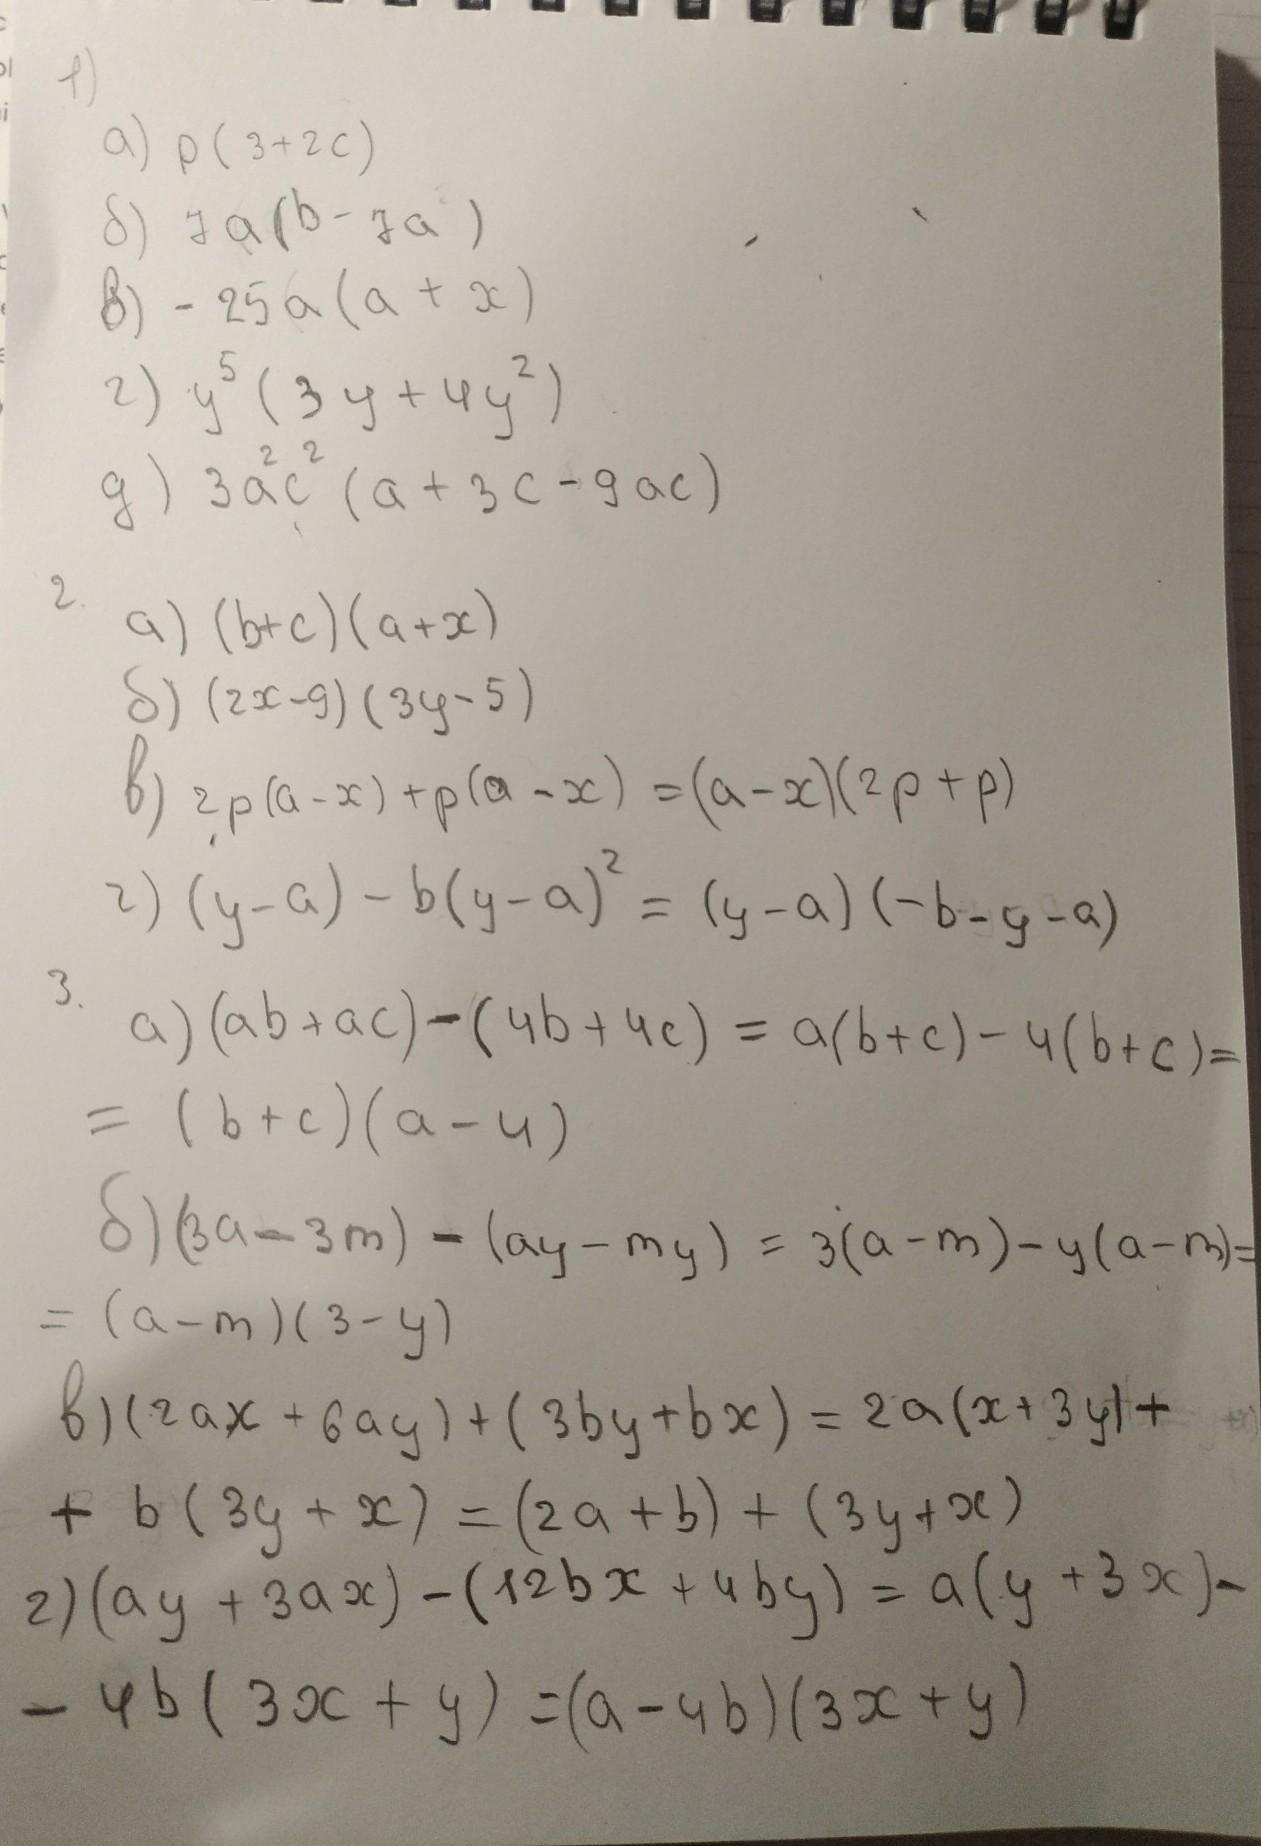 1)
а) p(3+2c)
б) 7a(b-7a)
в) -25a(a+x)
г) y⁵(3y+4y²)
д) 3a²c²(a+3c-9ac)
2.
а) (b+c)(a+x)
б) (2x-9)(3y-5)
в) 2p(a-x)+p(a-x)=(a-x)(2p+p)
г) (y-a)-b(y-a)²=(y-a)(-b-y-a)
3.
а) (ab+ac)-(4b+4c)=a(b+c)-4(b+c)=
=(b+c)(a-4)
б) (3a-3m)-(ay-my)=3(a-m)-y(a-m)=
=(a-m)(3-y)
в) (2ax+6ay)+(3by+bx)=2a(x+3y)+
+b(3y+x)=(2a+b)+(3y+x)
г) (ay+3ax)-(12bx+4by)=a(y+3x)-
-4b(3x+y)=(a-4b)(3x+y)